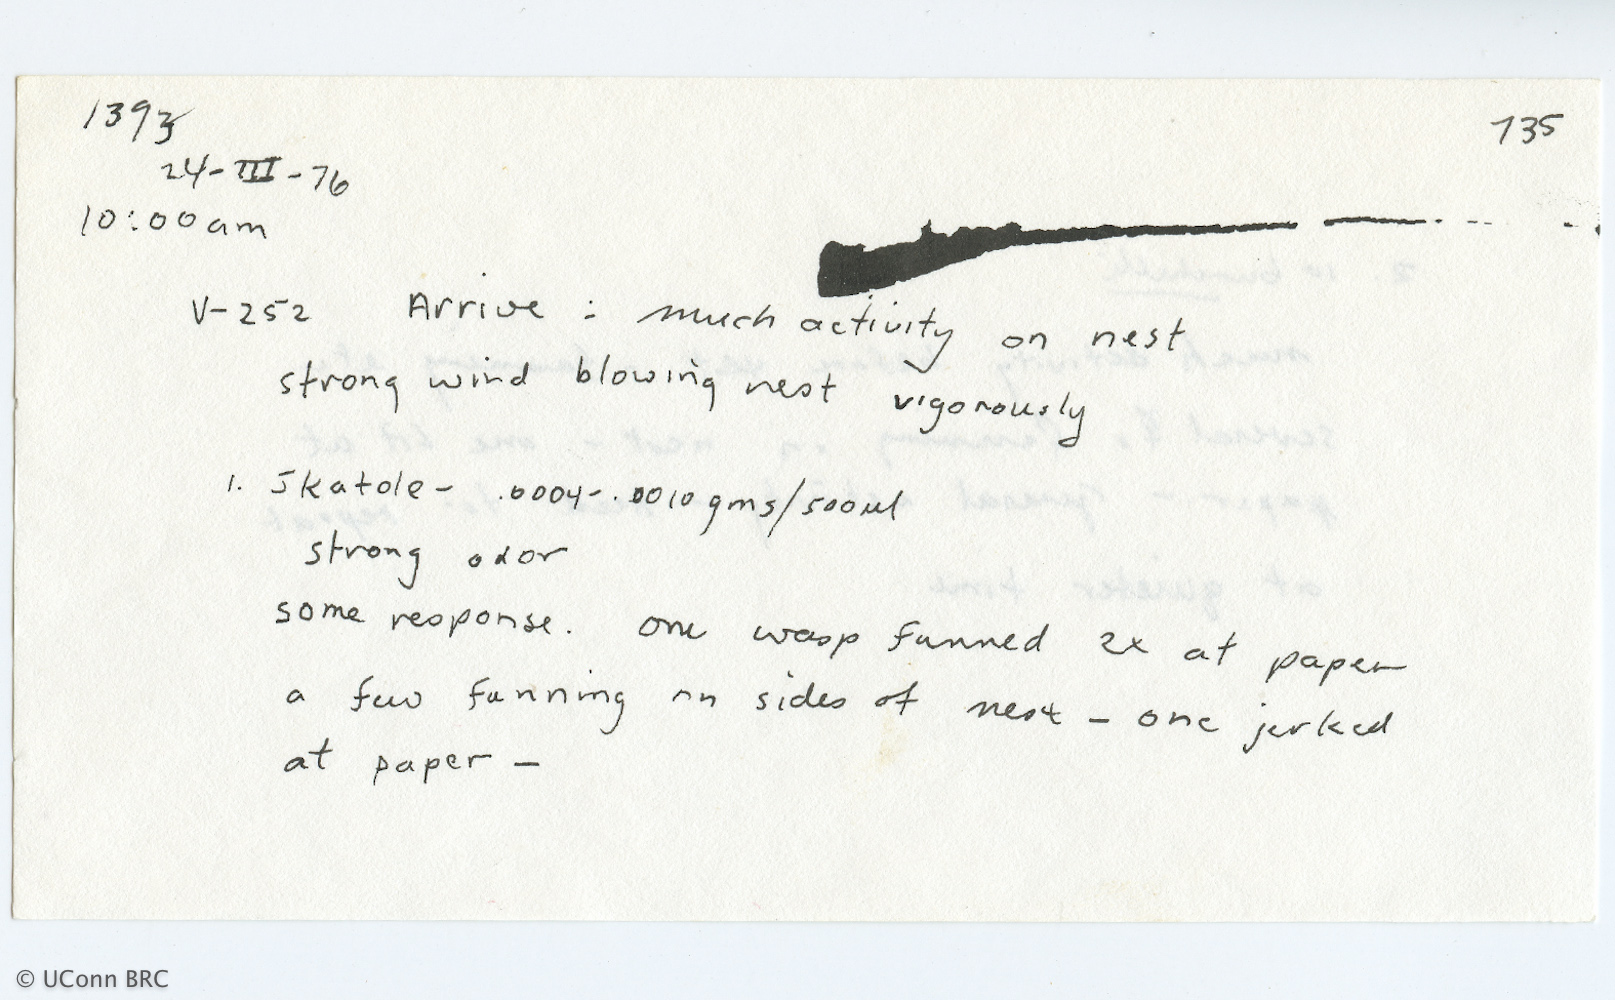 1393
735
24-III-76
10:00am
V-252 Arrive : much activity on nest
strong wind blowing nest vigorously
1. Skatole - .0004-.0010 gms/500ul
strong odor
some response. One wasp fanned 2x at paper
a few fanning on sides of nest - one jerked
at paper -
© UConn BRC